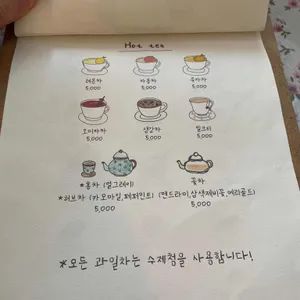 Hot tea
레몬차 자몽차 유자차
5,000 5,000 5,000
오미자차 생강차 밀크티
5,000 5,000 5,000
*홍차 (얼그레이) 꽃차
*허브차 (카모마일,페퍼민트) (맨드라미,삼색제비꽃,메리골드)
5,000 5,000
*모든 과일차는 수제청을 사용합니다!